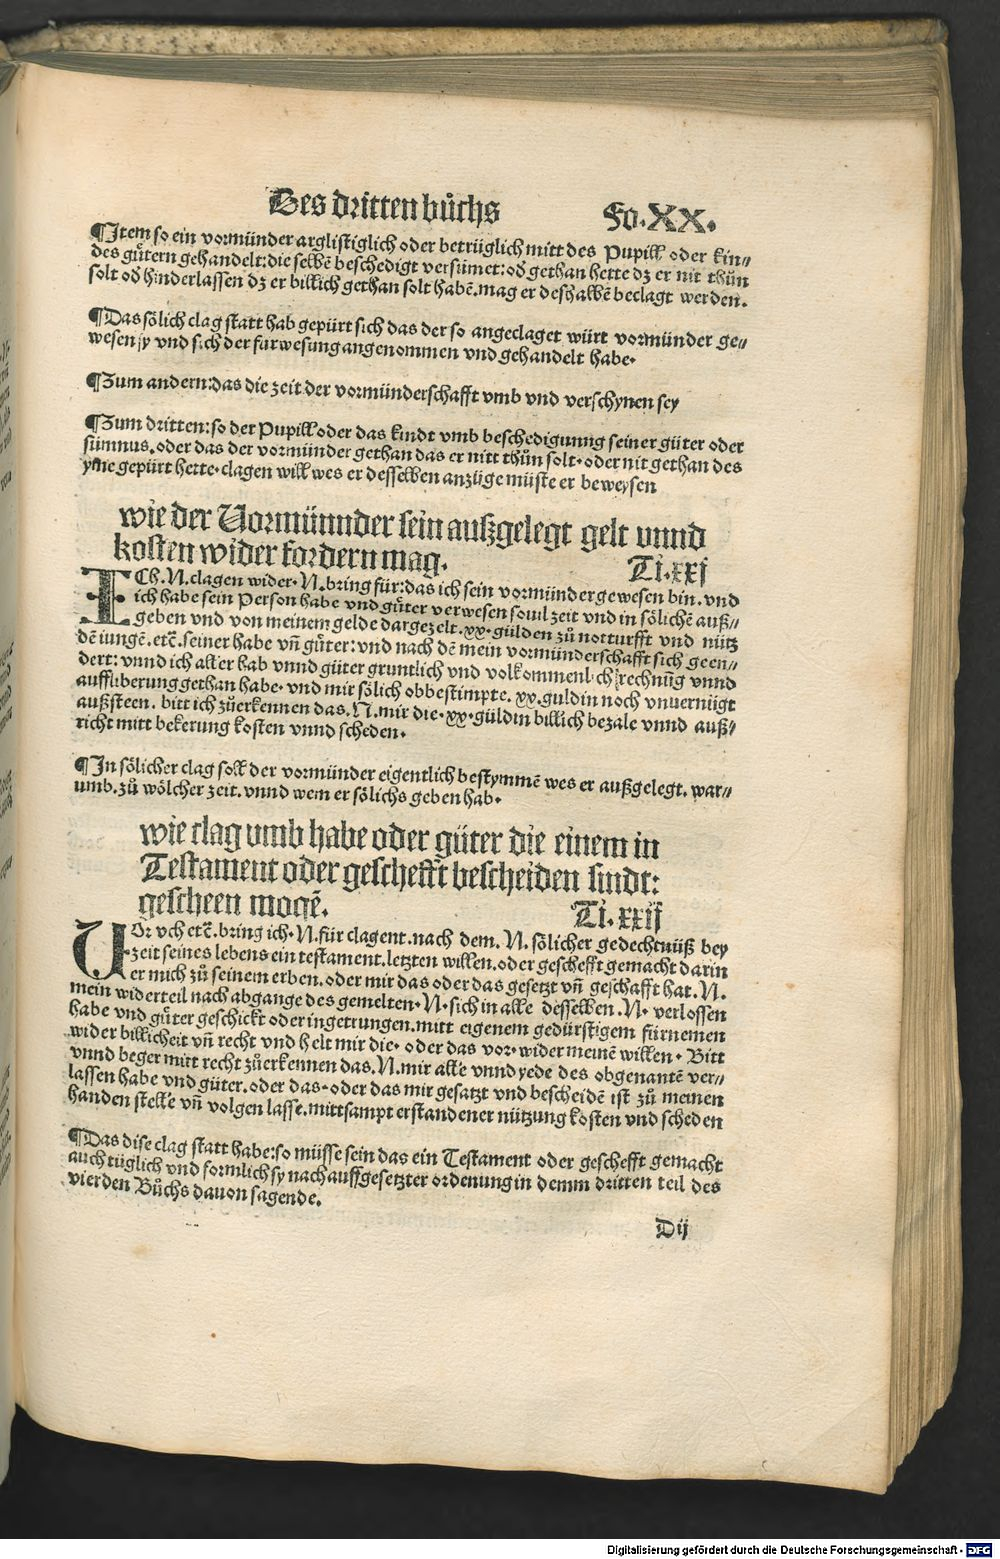 Des dritten bůchs Fo. XX.
¶Item so ein vormünder arglistiglich oder betrüglich mitt des Pupill oder kin⸗
des gůtern gehandelt: die selbē beschedigt versümet: od̕ gethan hette dz er nit thůn
solt od̕ hinderlassen dz er billich gethan solt habē. mag er deshalbē beclagt werden.
¶Das sölich clag statt hab gepürt sich das der so angeclaget würt vormünder ge⸗
wesen sy vnd sich der furwesung angenommen vnd gehandelt habe.
¶Zum andern: das die zeit der vormünderschafft vmb vnd verschynen sey
¶Zum dritten: so der Pupill oder das kindt vmb beschedigunng seiner güter oder
sümnus. oder das der vormünder gethan das er nitt thůn solt. oder nit gethan des
yme gepürt hette. clagen will wes er desselben anzüge müste er beweysen
wie der Vormünnder sein außgelegt gelt vnnd
kosten wider fordern mag. Ti. xxj
ICh. N. clagen wider. N. bring für: das ich sein vormünder gewesen bin. vnd
ich habe sein Person habe vnd gůter verwesen souil zeit vnd in sölichē auß⸗
geben vnd von meinem gelde dargezelt. xx. gülden zů notturfft vnd nütz
dē iungē. etc̄. seiner habe vn̄ gůter: vnd nach dē mein vormünderschafft sich geen⸗
dert: vnnd ich aller hab vnnd güter gruntlich vnd volkommenlich rechnūg vnnd
auffliberung gethan habe. vnd mir sölich obbestimpte. xx. guldin noch vnuernügt
außsteen. bitt ich zůerkennen das. N. mir die. xx. güldin billich bezale vnnd auß⸗
richt mitt bekerung kosten vnnd scheden.
¶In sölicher clag soll der vormünder eigentlich bestymmē wes er außgelegt. war⸗
umb. zů wölcher zeit. vnnd wem er sölichs geben hab.
wie clag vmb habe oder güter die einem in
Testament oder geschefft bescheiden sindt:
gescheen mogē. Ti. xxij
VOr vch etc̄. bring ich. N. für clagent. nach dem. N. sölicher gedechtnüß bey
zeit seines lebens ein testament. letzten willen. oder geschefft gemacht darin
er mich zů seinem erben. oder mir das oder das gesetzt vn̄ geschafft hat. N.
mein widerteil nach abgange des gemelten. N. sich in alle desselben. N. verlossen
habe vnd gůter geschickt oder ingetrungen. mitt eigenem gedürstigem fürnemen
wider billicheit vn̄ recht vnd helt mir die. oder das vor. wider meinē willen. Bitt
vnnd beger mitt recht zůerkennen das. N. mir alle vnnd yede des obgenantē ver⸗
lassen habe vnd güter. oder das. oder das mir gesatzt vnd bescheidē ist zů meinen
handen stelle vn̄ volgen lasse. mittsampt erstandener nützung kosten vnd scheden
¶Das dise clag statt habe: so müsse sein das ein Testament oder geschefft gemacht
auch tüglich vnd formlich sy nach auffgesetzter ordenung in demm dritten teil des
vierden Bůchs dauon sagende.
Dij
Digitalisierung gefördert durch die Deutsche Forschungsgemeinschaft - DFG